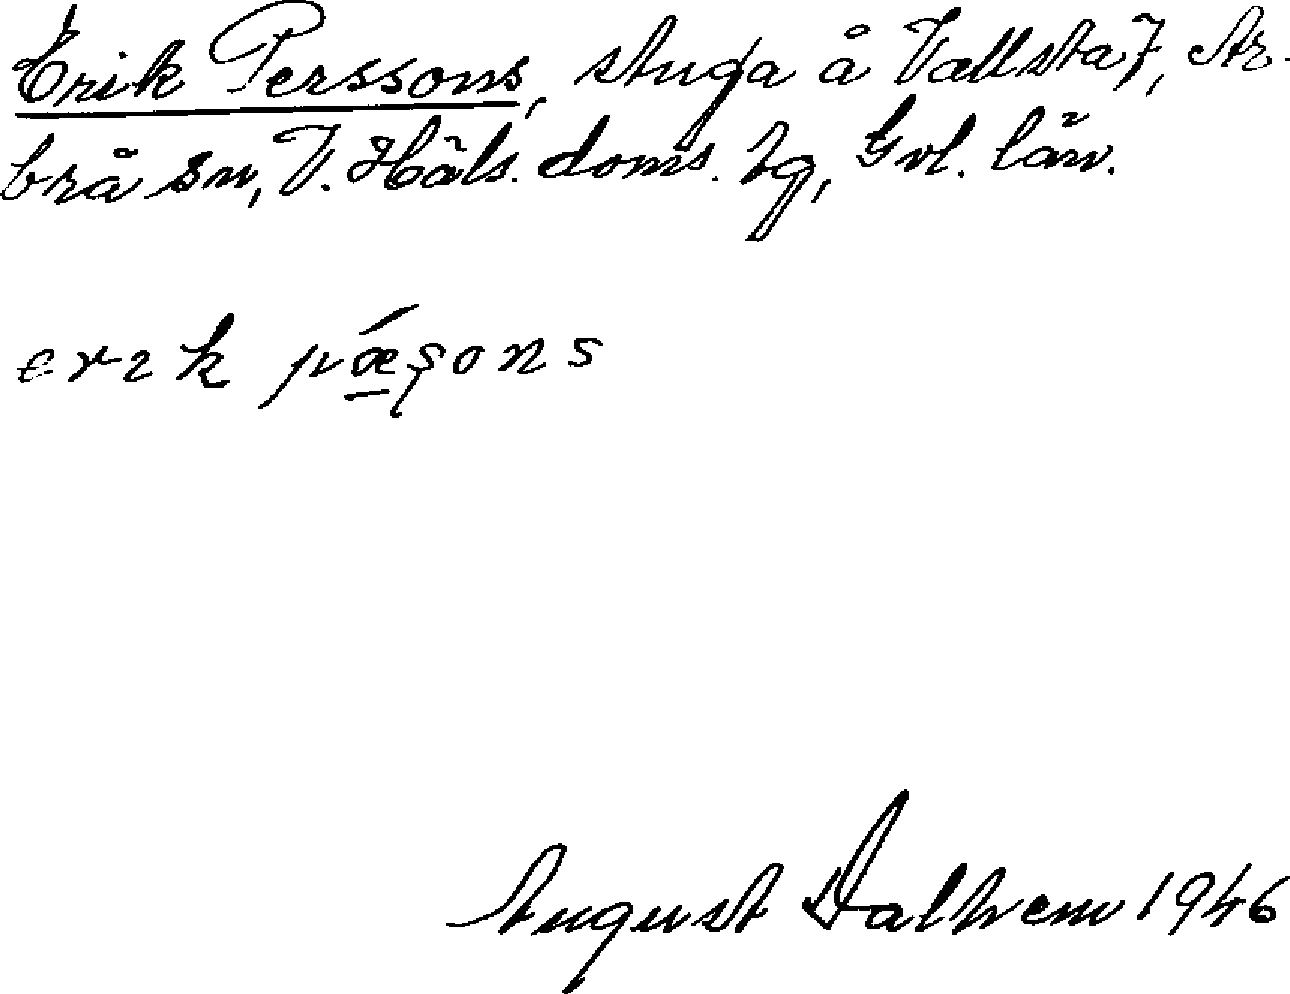 Erik Perssons, stuga å Vallsta 7, Ar-
brå sn, V. Häls. doms. hg, Gvl. län.
erık pǽşons
August Dalhem 1946